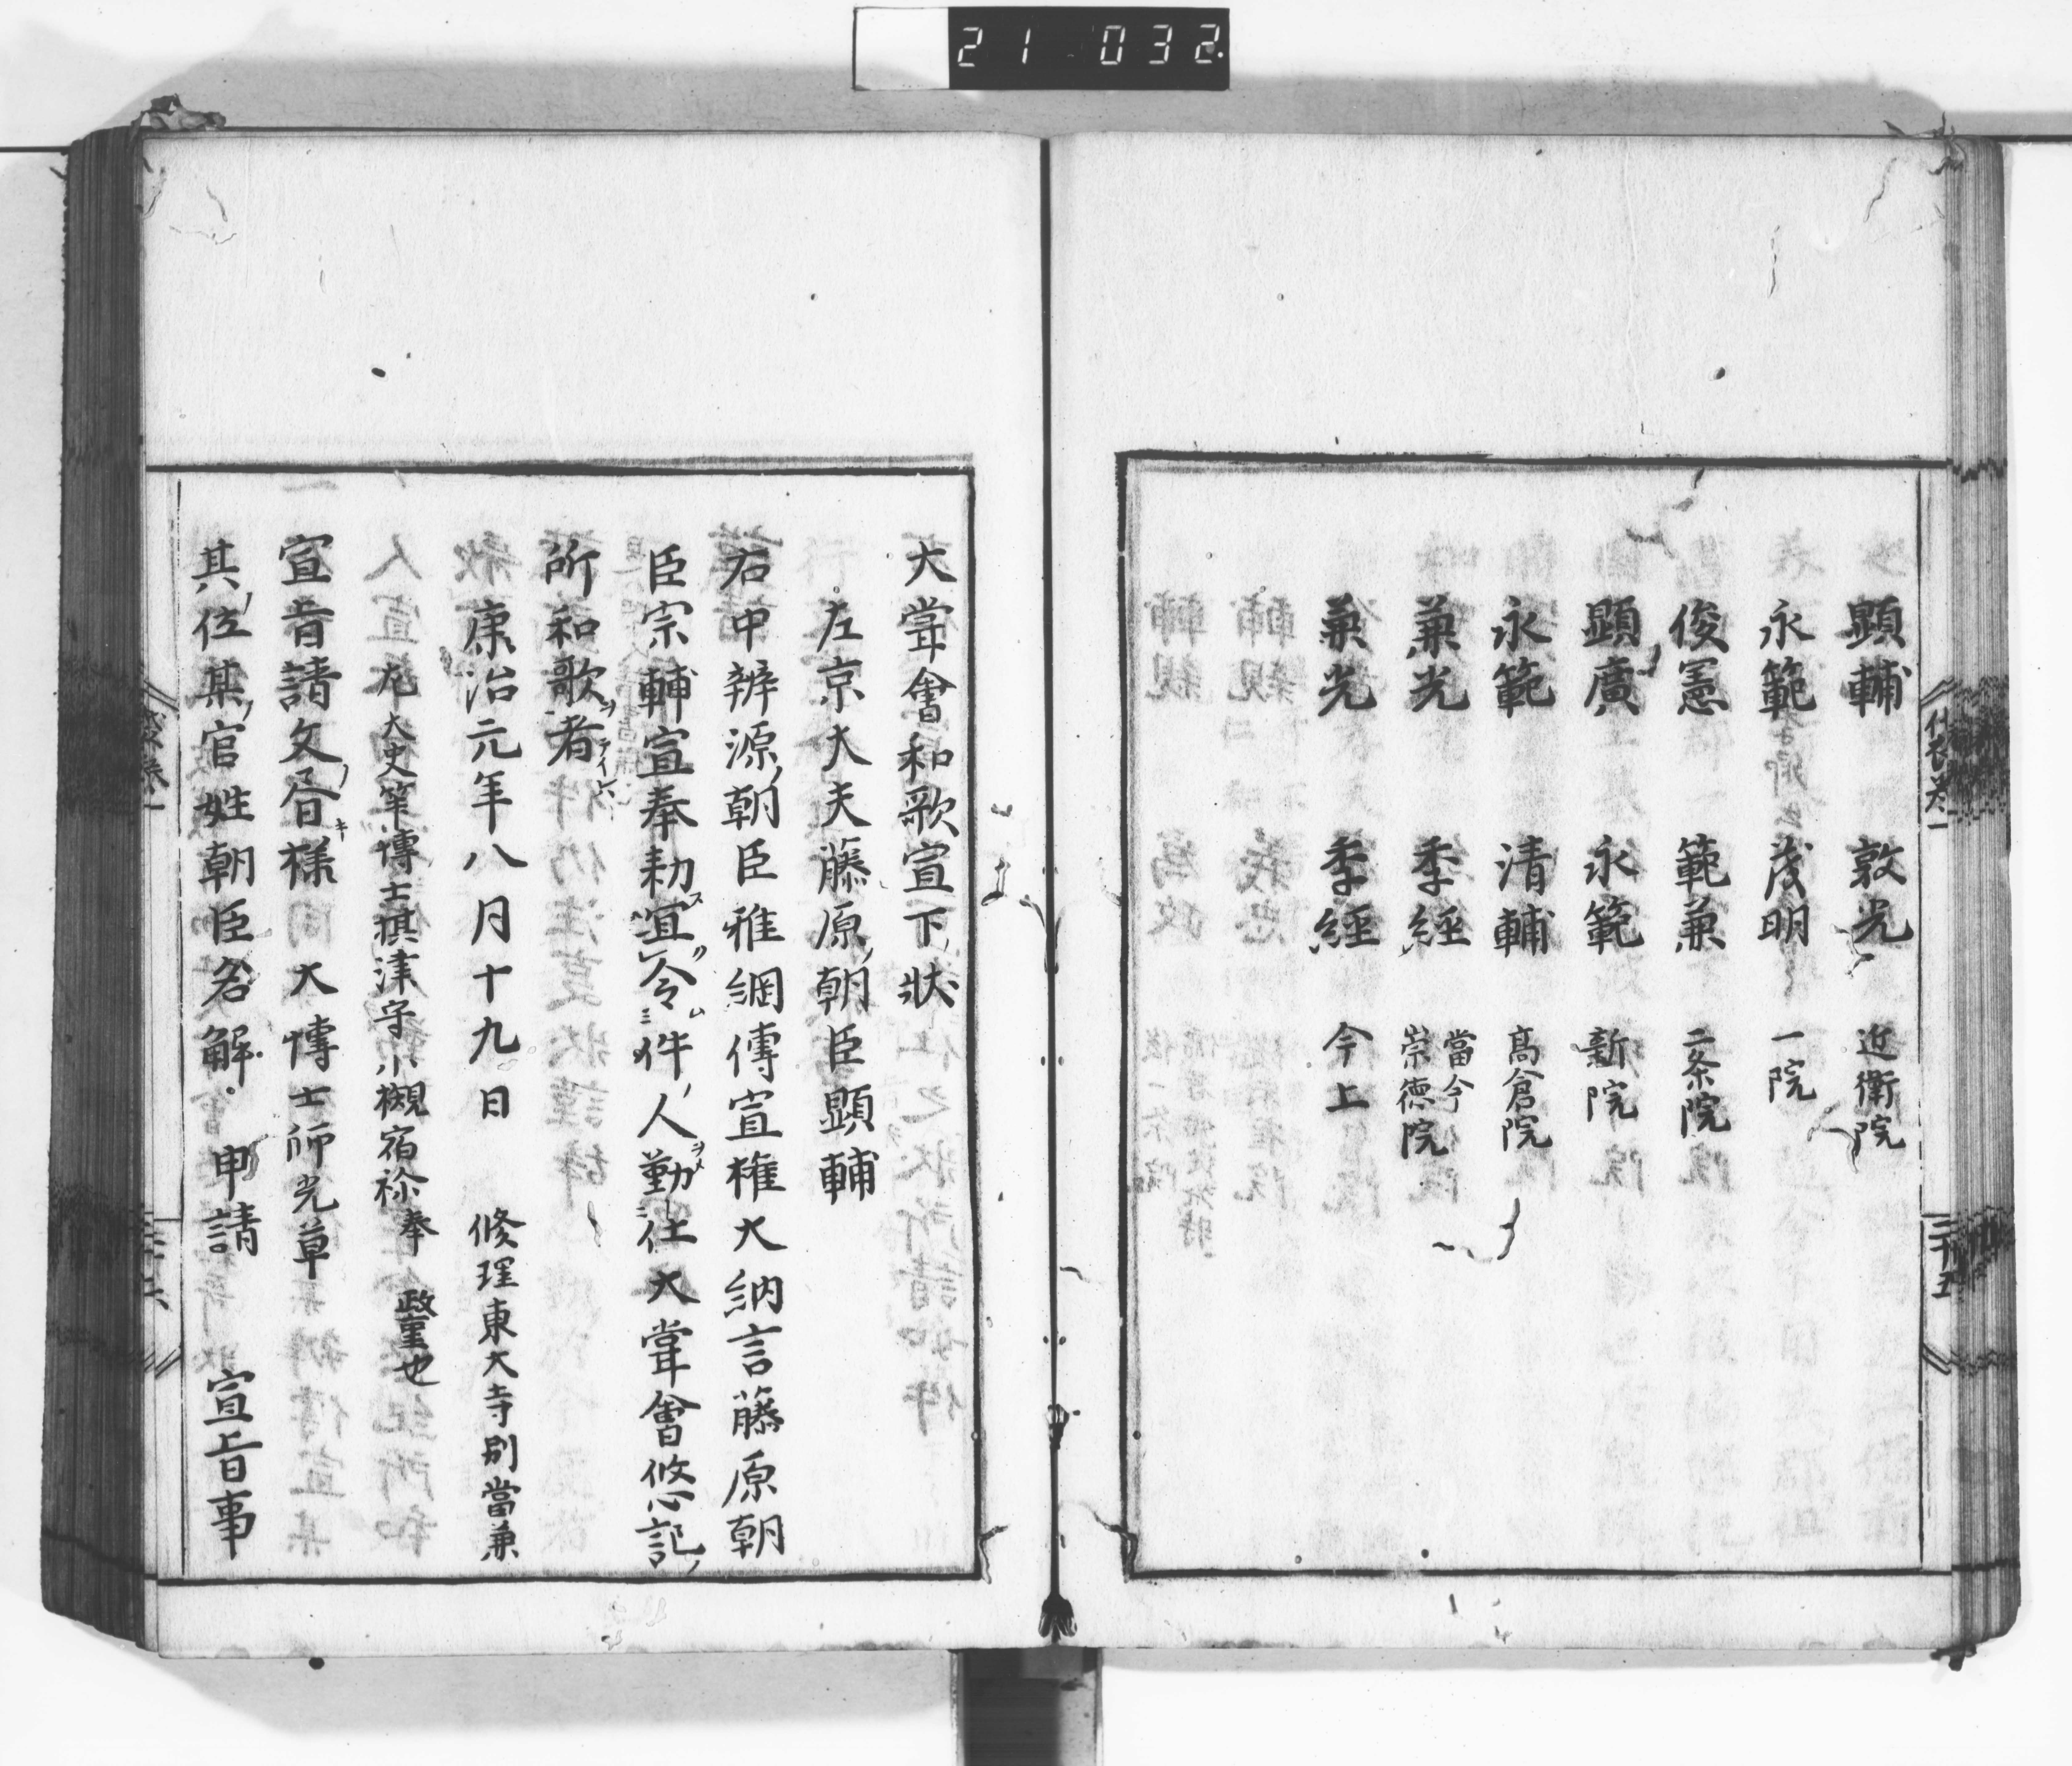 21 032
顕輔 敦光 近衛院
永範 茂明 一院
俊憲 範兼 二条院
顕廣 永範 新院
永範 清輔 髙倉院
兼光 季經 當今 崇徳院
兼光 季經 今上
袋卷一
三十五
大甞會和歌宣下狀
左京大夫藤原朝臣顕輔
右中辨源朝臣雅綱傳宣権大納言藤原朝
臣宗輔宣奉勅宜令件人勤仕大甞會悠記
所和歌者
康治元年八月十九日 修理東大寺別當兼
大史筭博士
津守小槻宿祢奉 政重也
宣旨請文昏様 大博士師光草
其位某官姓朝臣名解 申請 宣旨事